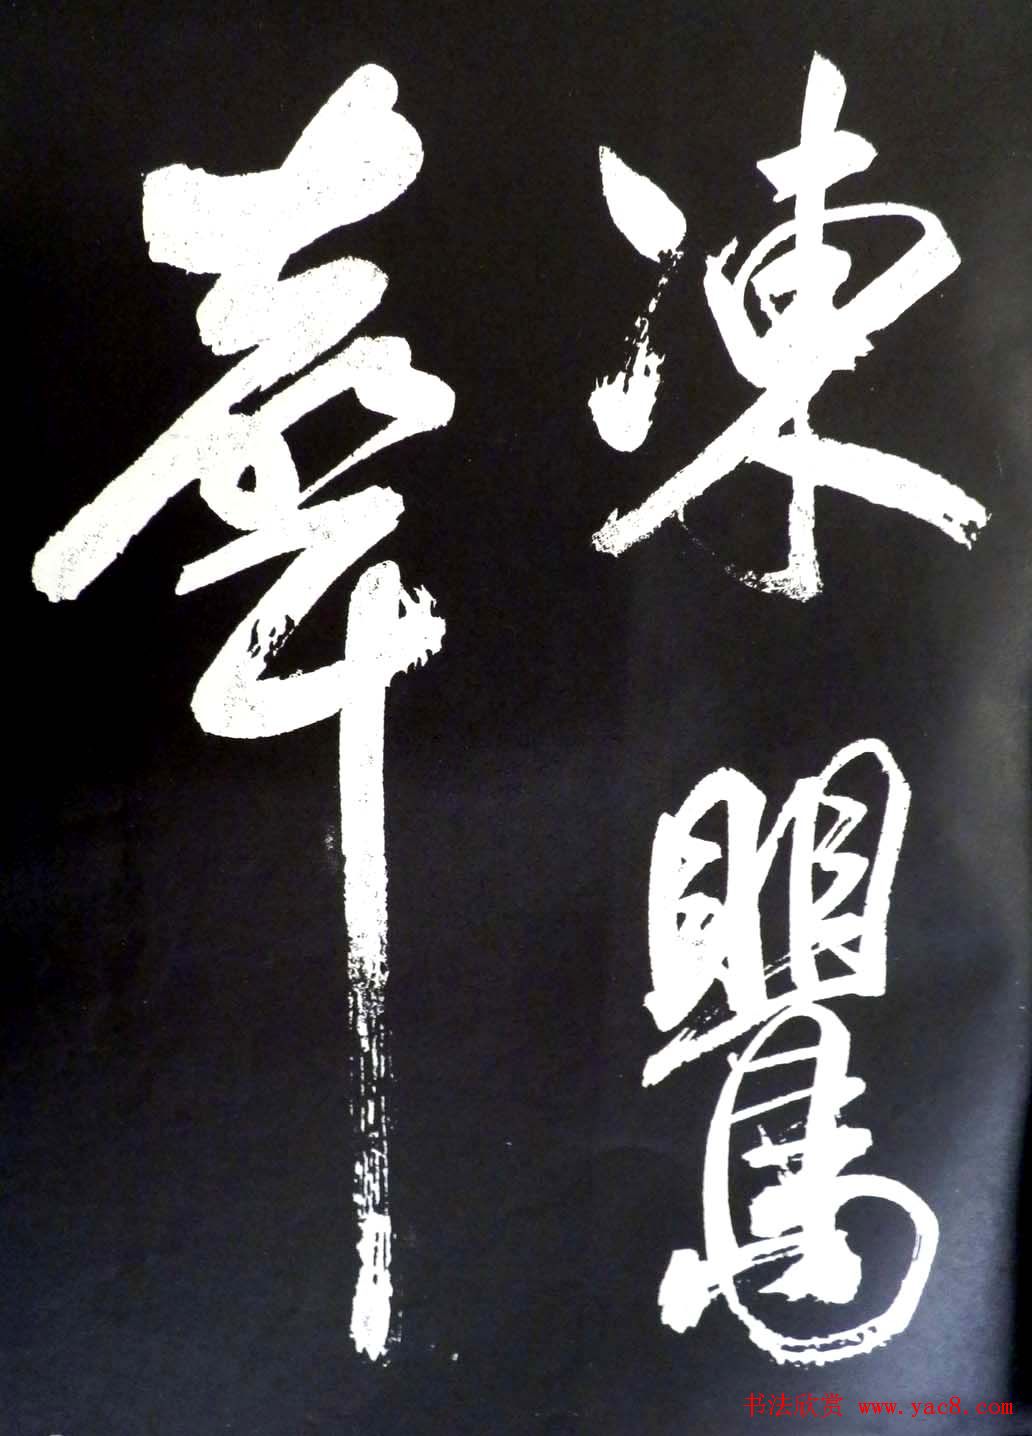 凍鸎
牽
书法欣赏 www.yac8.com